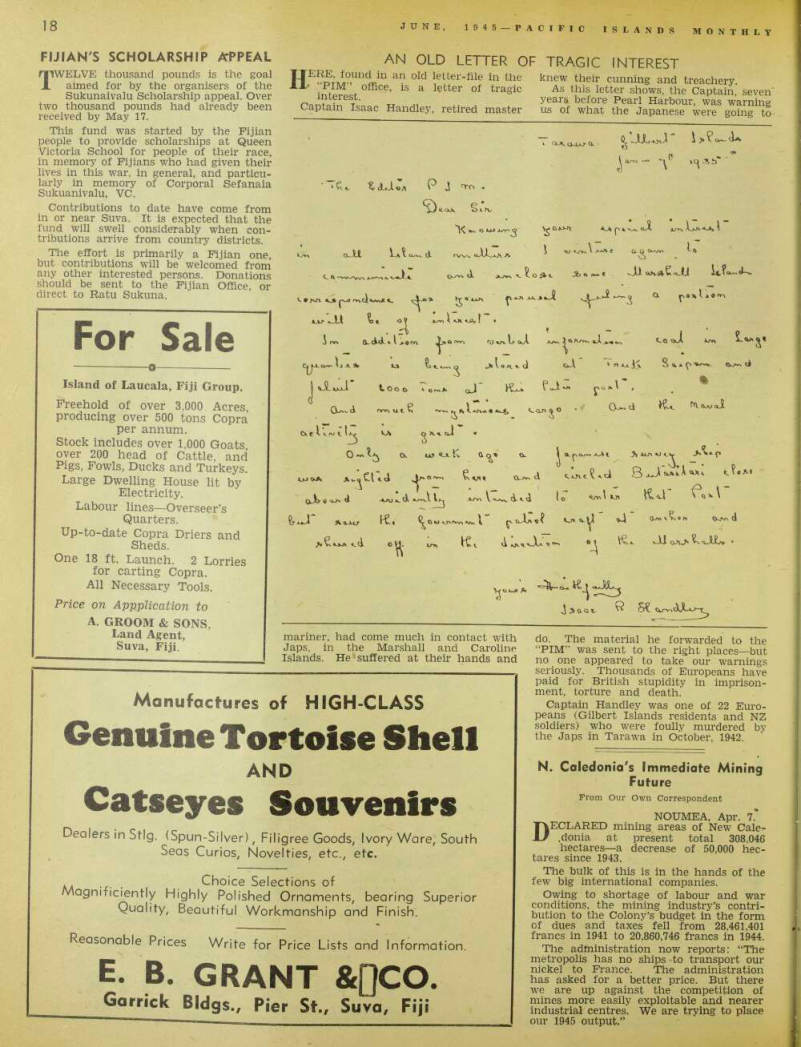 18
JUNE, 1945—PACIFIC ISLANDS MONTHLY
FIJIAN'S SCHOLARSHIP APPEAL
TWELVE thousand pounds is the goal
aimed for by the organisers of the
Sukunaivalu Scholarship appeal. Over
two thousand pounds had already been
received by May 17.
This fund was started by the Fijian
people to provide scholarships at Queen
Victoria School for people of their race,
in memory of Fijians who had given their
lives in this war, in general, and particu-
larly in memory of Corporal Sefanaia
Sukuanivalu, VC.
Contributions to date have come from
in or near Suva. It is expected that the
fund will swell considerably when con-
tributions arrive from country districts.
The effort is primarily a Fijian one,
but contributions will be welcomed from
any other interested persons. Donations
should be sent to the Fijian Office, or
direct to Ratu Sukuna.
For Sale
Island of Laucala, Fiji Group.
Freehold of over 3,000 Acres,
producing over 500 tons Copra
per annum.
Stock includes over 1,000 Goats,
over 200 head of Cattle, and
Pigs, Fowls, Ducks and Turkeys.
Large Dwelling House lit by
Electricity.
Labour lines—Overseer's
Quarters.
Up-to-date Copra Driers and
Sheds.
One 18 ft. Launch. 2 Lorries
for carting Copra.
All Necessary Tools.
Price on Appplication to
A. GROOM & SONS,
Land Agent,
Suva, Fiji.
AN OLD LETTER OF TRAGIC INTEREST
HERE, found in an old letter-file in the
"PIM" office, is a letter of tragic
interest.
Captain Isaac Handley, retired master
knew their cunning and treachery.
As this letter shows, the Captain, seven
years before Pearl Harbour, was warning
us of what the Japanese were going to
Tarawa Gilbert Islands
Jan — 7th 1935
The Editor P I M.
Dear Sir
Knowing your especial interest
in all Island matters I venture again to
communicate and enclose some Marshall Island
correspondence for your perusal feeling a portion
will be of interest.
In addition from verbal information coal in large
quantities is being stored at Truk Saipan and
Jaluit 2000 tons at this latter port.
And much mysterious cargo. And the Naval
activity is great.
Only a week ago a Japanese survey ship
was sighted from here and circled Butaritari close
aboard evidently intended to enter that Port
but saw the Government patrol craft at anchor and
sheered off in the direction of the Marshalls.
yours Faithfully
Isaac R Handley
mariner, had come much in contact with
Japs, in the Marshall and Caroline
Islands. He suffered at their hands and
do. The material he forwarded to the
"PIM" was sent to the right places—but
no one appeared to take our warnings
seriously. Thousands of Europeans have
paid for British stupidity in imprison-
ment, torture and death.
Captain Handley was one of 22 Euro-
peans (Gilbert Islands residents and NZ
soldiers) who were foully murdered by
the Japs in Tarawa in October, 1942.
Manufactures of HIGH-CLASS
Genuine Tortoise Shell
AND
Catseyes Souvenirs
Dealers in Stlg. (Spun-Silver), Filigree Goods, Ivory Ware, South
Seas Curios, Novelties, etc., etc.
Choice Selections of
Magnificiently Highly Polished Ornaments, bearing Superior
Quality, Beautiful Workmanship and Finish.
Reasonable Prices Write for Price Lists and Information.
E. B. GRANT & CO.
Garrick Bldgs., Pier St., Suva, Fiji
N. Caledonia's Immediate Mining
Future
From Our Own Correspondent
NOUMEA, Apr. 7.
DECLARED mining areas of New Cale-
donia at present total 308,046
hectares—a decrease of 50,000 hec-
tares since 1943.
The bulk of this is in the hands of the
few big international companies.
Owing to shortage of labour and war
conditions, the mining industry's contri-
bution to the Colony's budget in the form
of dues and taxes fell from 28,461,401
francs in 1941 to 20,860,746 francs in 1944.
The administration now reports: "The
metropolis has no ships to transport our
nickel to France. The administration
has asked for a better price. But there
we are up against the competition of
mines more easily exploitable and nearer
industrial centres. We are trying to place
our 1945 output."